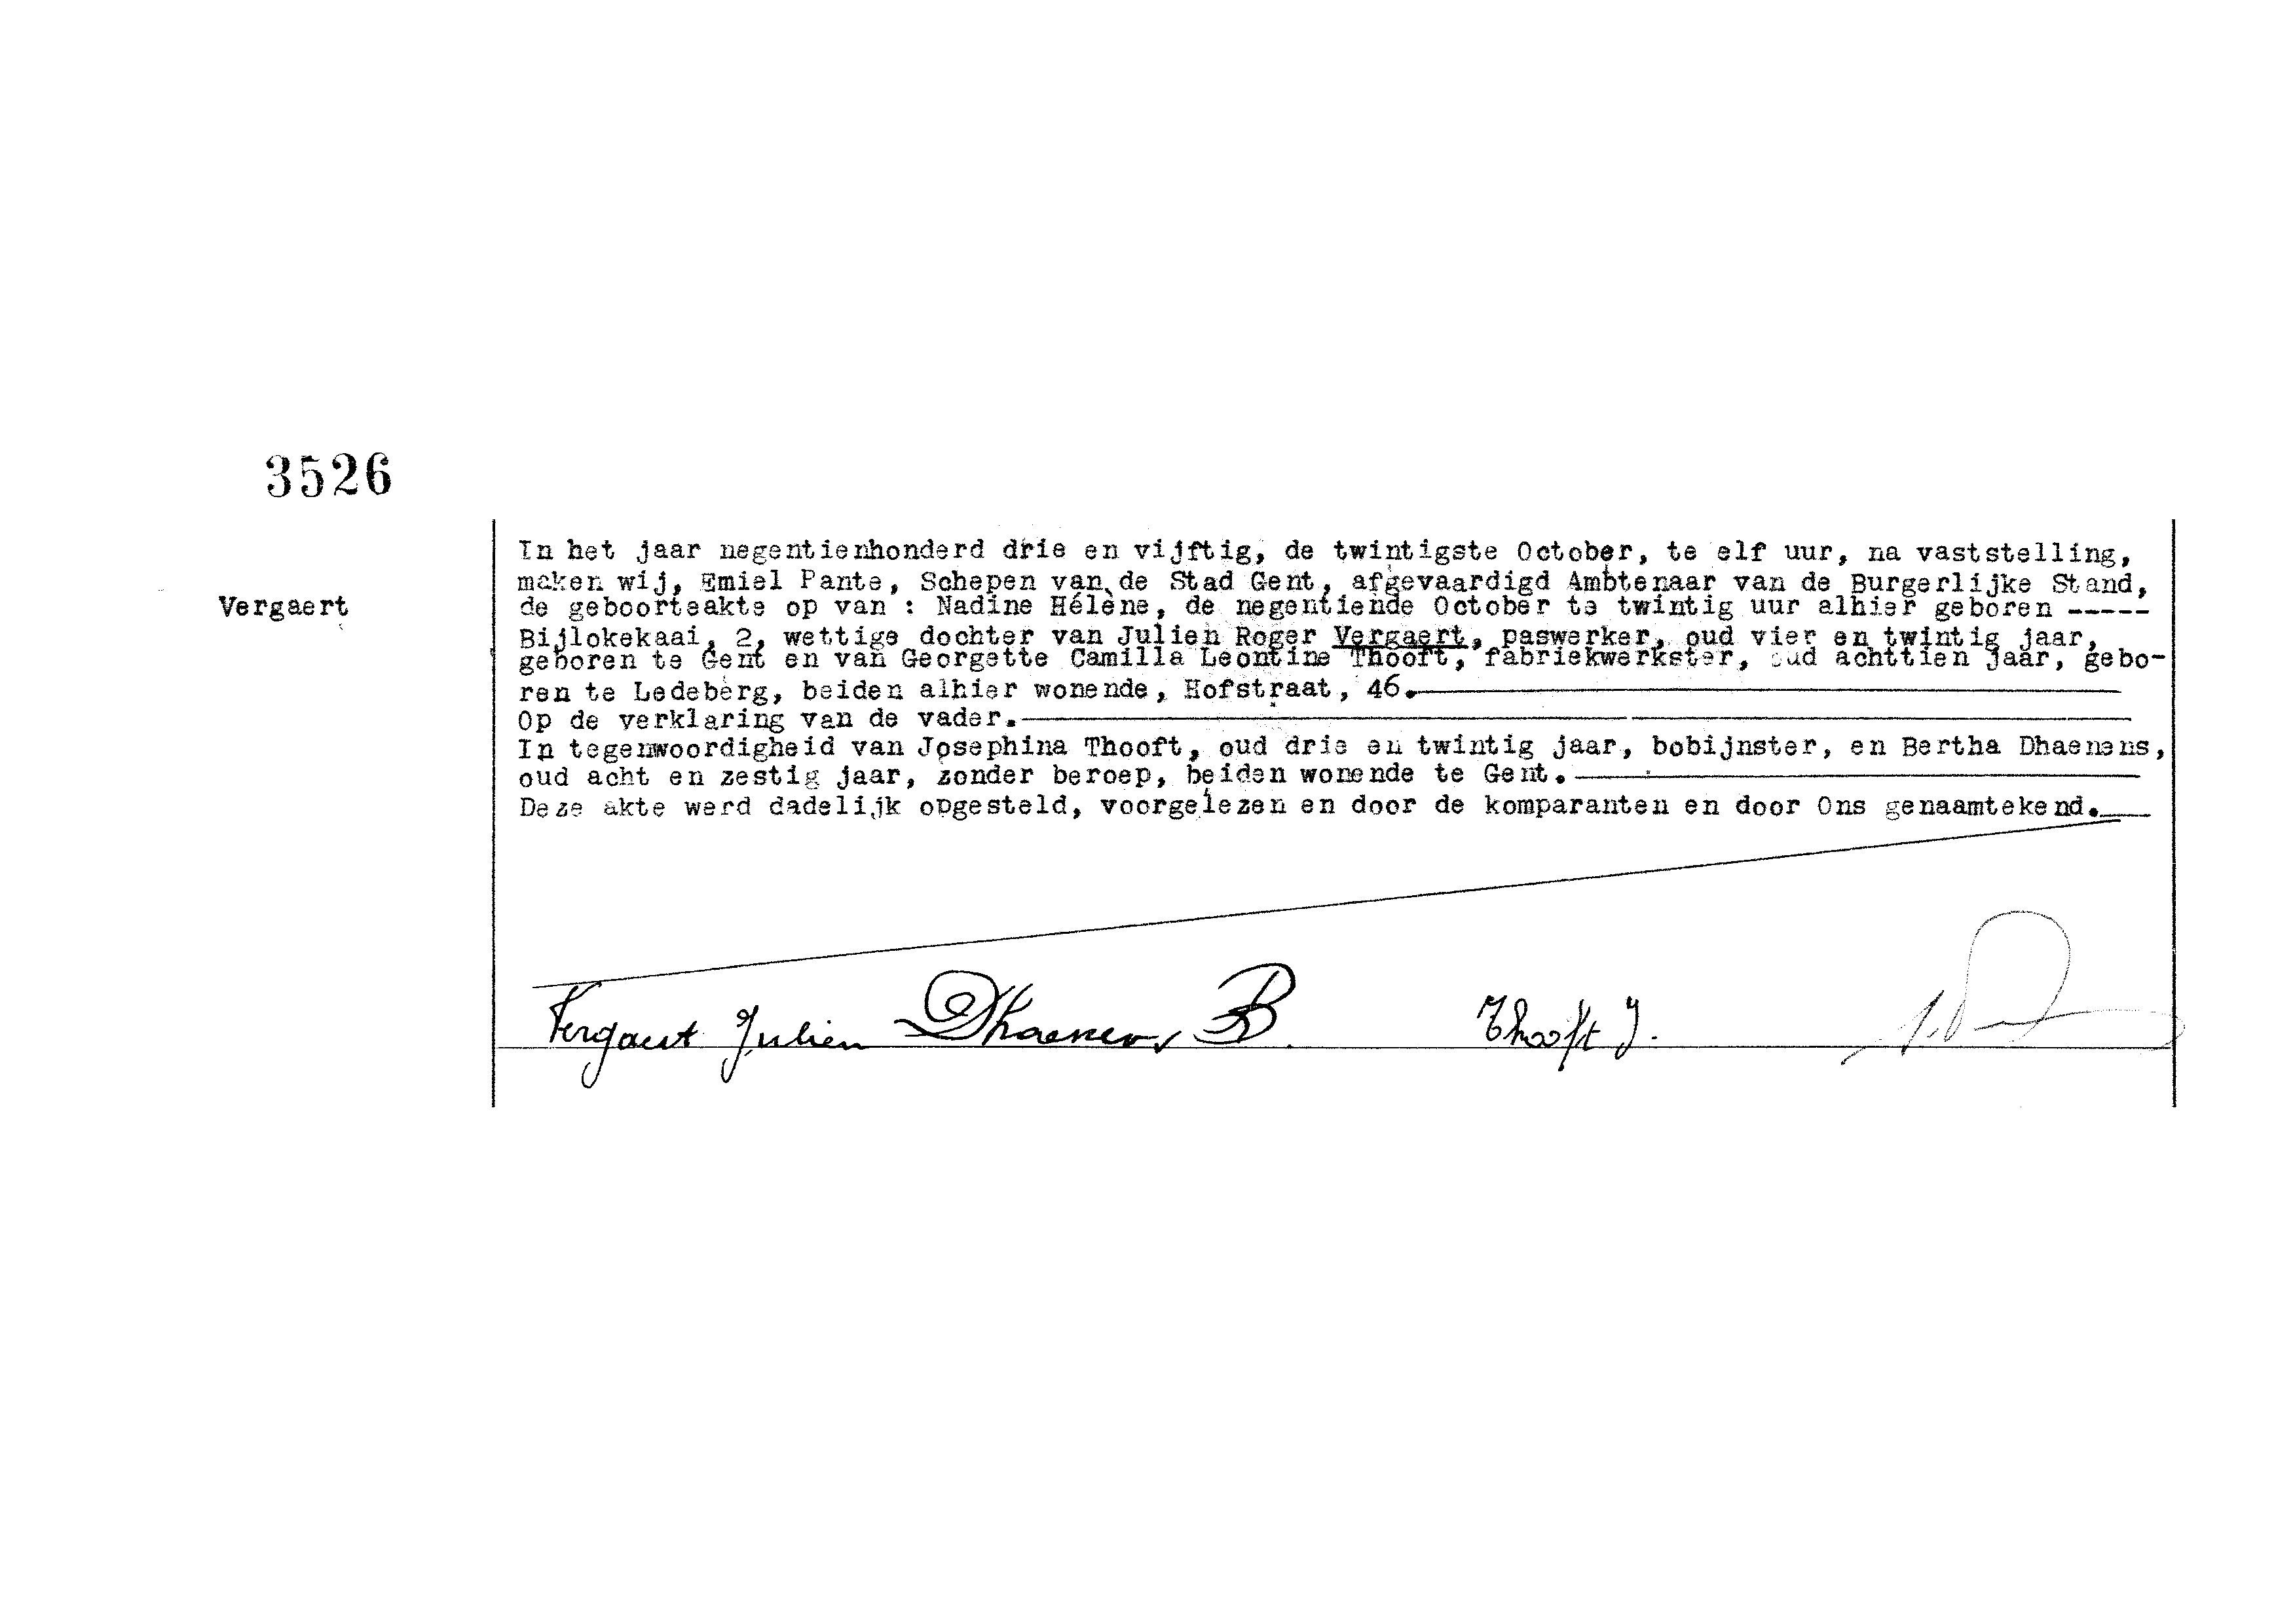 3526
Vergaert
In het jaar negentienhonderd drie en vijftig, de twintigste October, te elf uur, na vaststelling,
maken wij, Emiel Pante, Schepen van de Stad Gent, afgevaardigd Ambtenaar van de Burgerlijke Stand,
de geboorteakte op van : Nadine Hélène, de negentiende October te twintig uur alhier geboren -----
Bijlokekaai, 2, wettige dochter van Julien Roger Vergaert, paswerker, oud vier en twintig jaar,
geboren te Gent en van Georgette Camilla Leontine Thooft, fabriekwerkster, oud achttien jaar, gebo-
ren te Ledeberg, beiden alhier wonende, Hofstraat, 46.
Op de verklaring van de vader.
In tegenwoordigheid van Josephina Thooft, oud drie en twintig jaar, bobijnster, en Bertha Dhaenens,
oud acht en zestig jaar, zonder beroep, beiden wonende te Gent.
Deze akte werd dadelijk opgesteld, voorgelezen en door de komparanten en door Ons genaamtekend.
Vergaert Julien Dhaenens B. Thooft J.